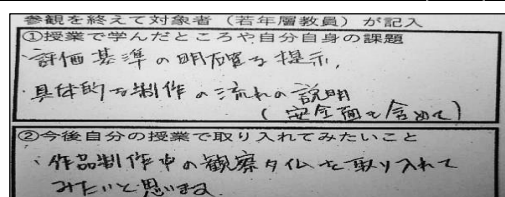 参観を終えて対象者(若年層教員)が記入
①授業で学んだところや自分自身の課題
・評価基準の明確な提示、
・具体的な制作の流れの説明
(安全面も含めて)
②今後自分の授業で取り入れてみたいこと
・作品制作中の観察タイムを取り入れて
みたいと思います。